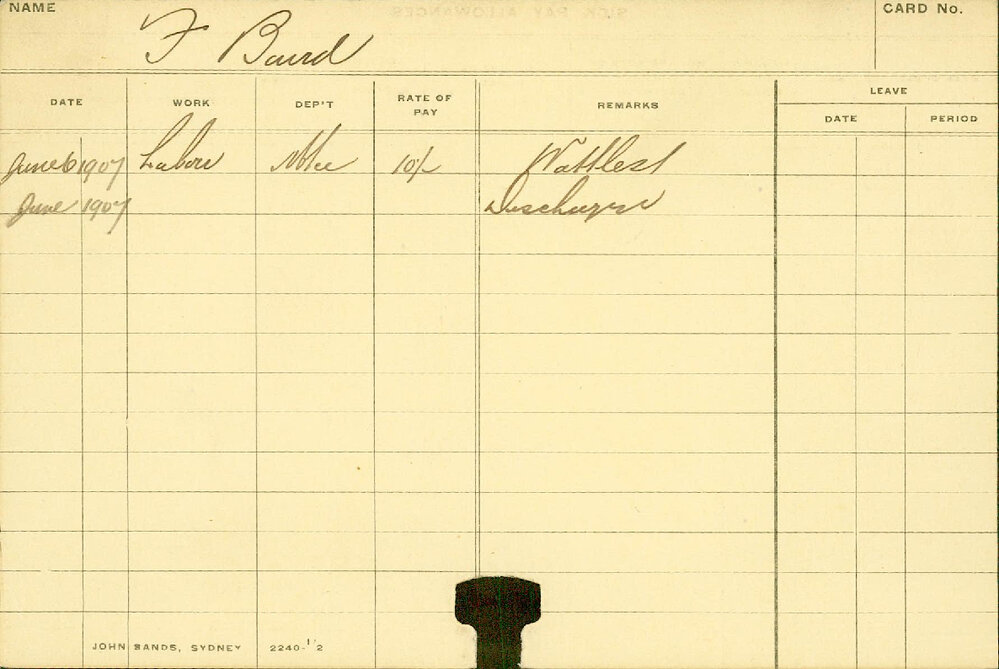 NAME
CARD No.
F Baird
DATE WORK DEP'T RATE OF PAY REMARKS LEAVE
DATE PERIOD
June 6 1907 Labor 10/- Wattle St
June 1907 Discharged
JOHN SANDS, SYDNEY 2240-1'2